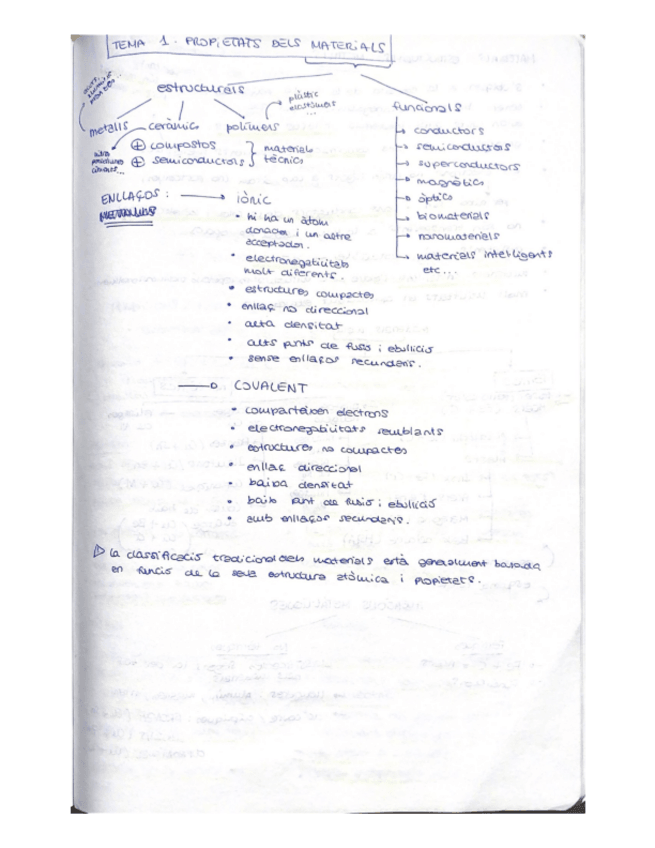 TEMA 1. PROPIETATS DELS MATERIALS
estructurals
plàstic
elastòmers
...
funcionals
metalls
ceràmics
polímers
⊕ compostos
⊕ semiconductors
materials
tècnics
conductors
semiconductors
superconductors
magnètics
òptics
biomaterials
nanomaterials
materials intel·ligents
etc...
ENLLAÇOS:
IÒNIC
• hi ha un àtom
donador i un altre
acceptador.
• electronegativitats
molt diferents
• estructures compactes
• enllaç no direccional
• alta densitat
• alts punts de fusió i ebullició
• sense enllaços secundaris.
COVALENT
• comparteixen electrons
• electronegativitats semblants
• estructures no compactes
• enllaç direccional
• baixa densitat
• baix punt de fusió i ebullició
• amb enllaços secundaris.
La classificació tradicional dels materials està generalment basada
en funció de la seva estructura atòmica i propietats.